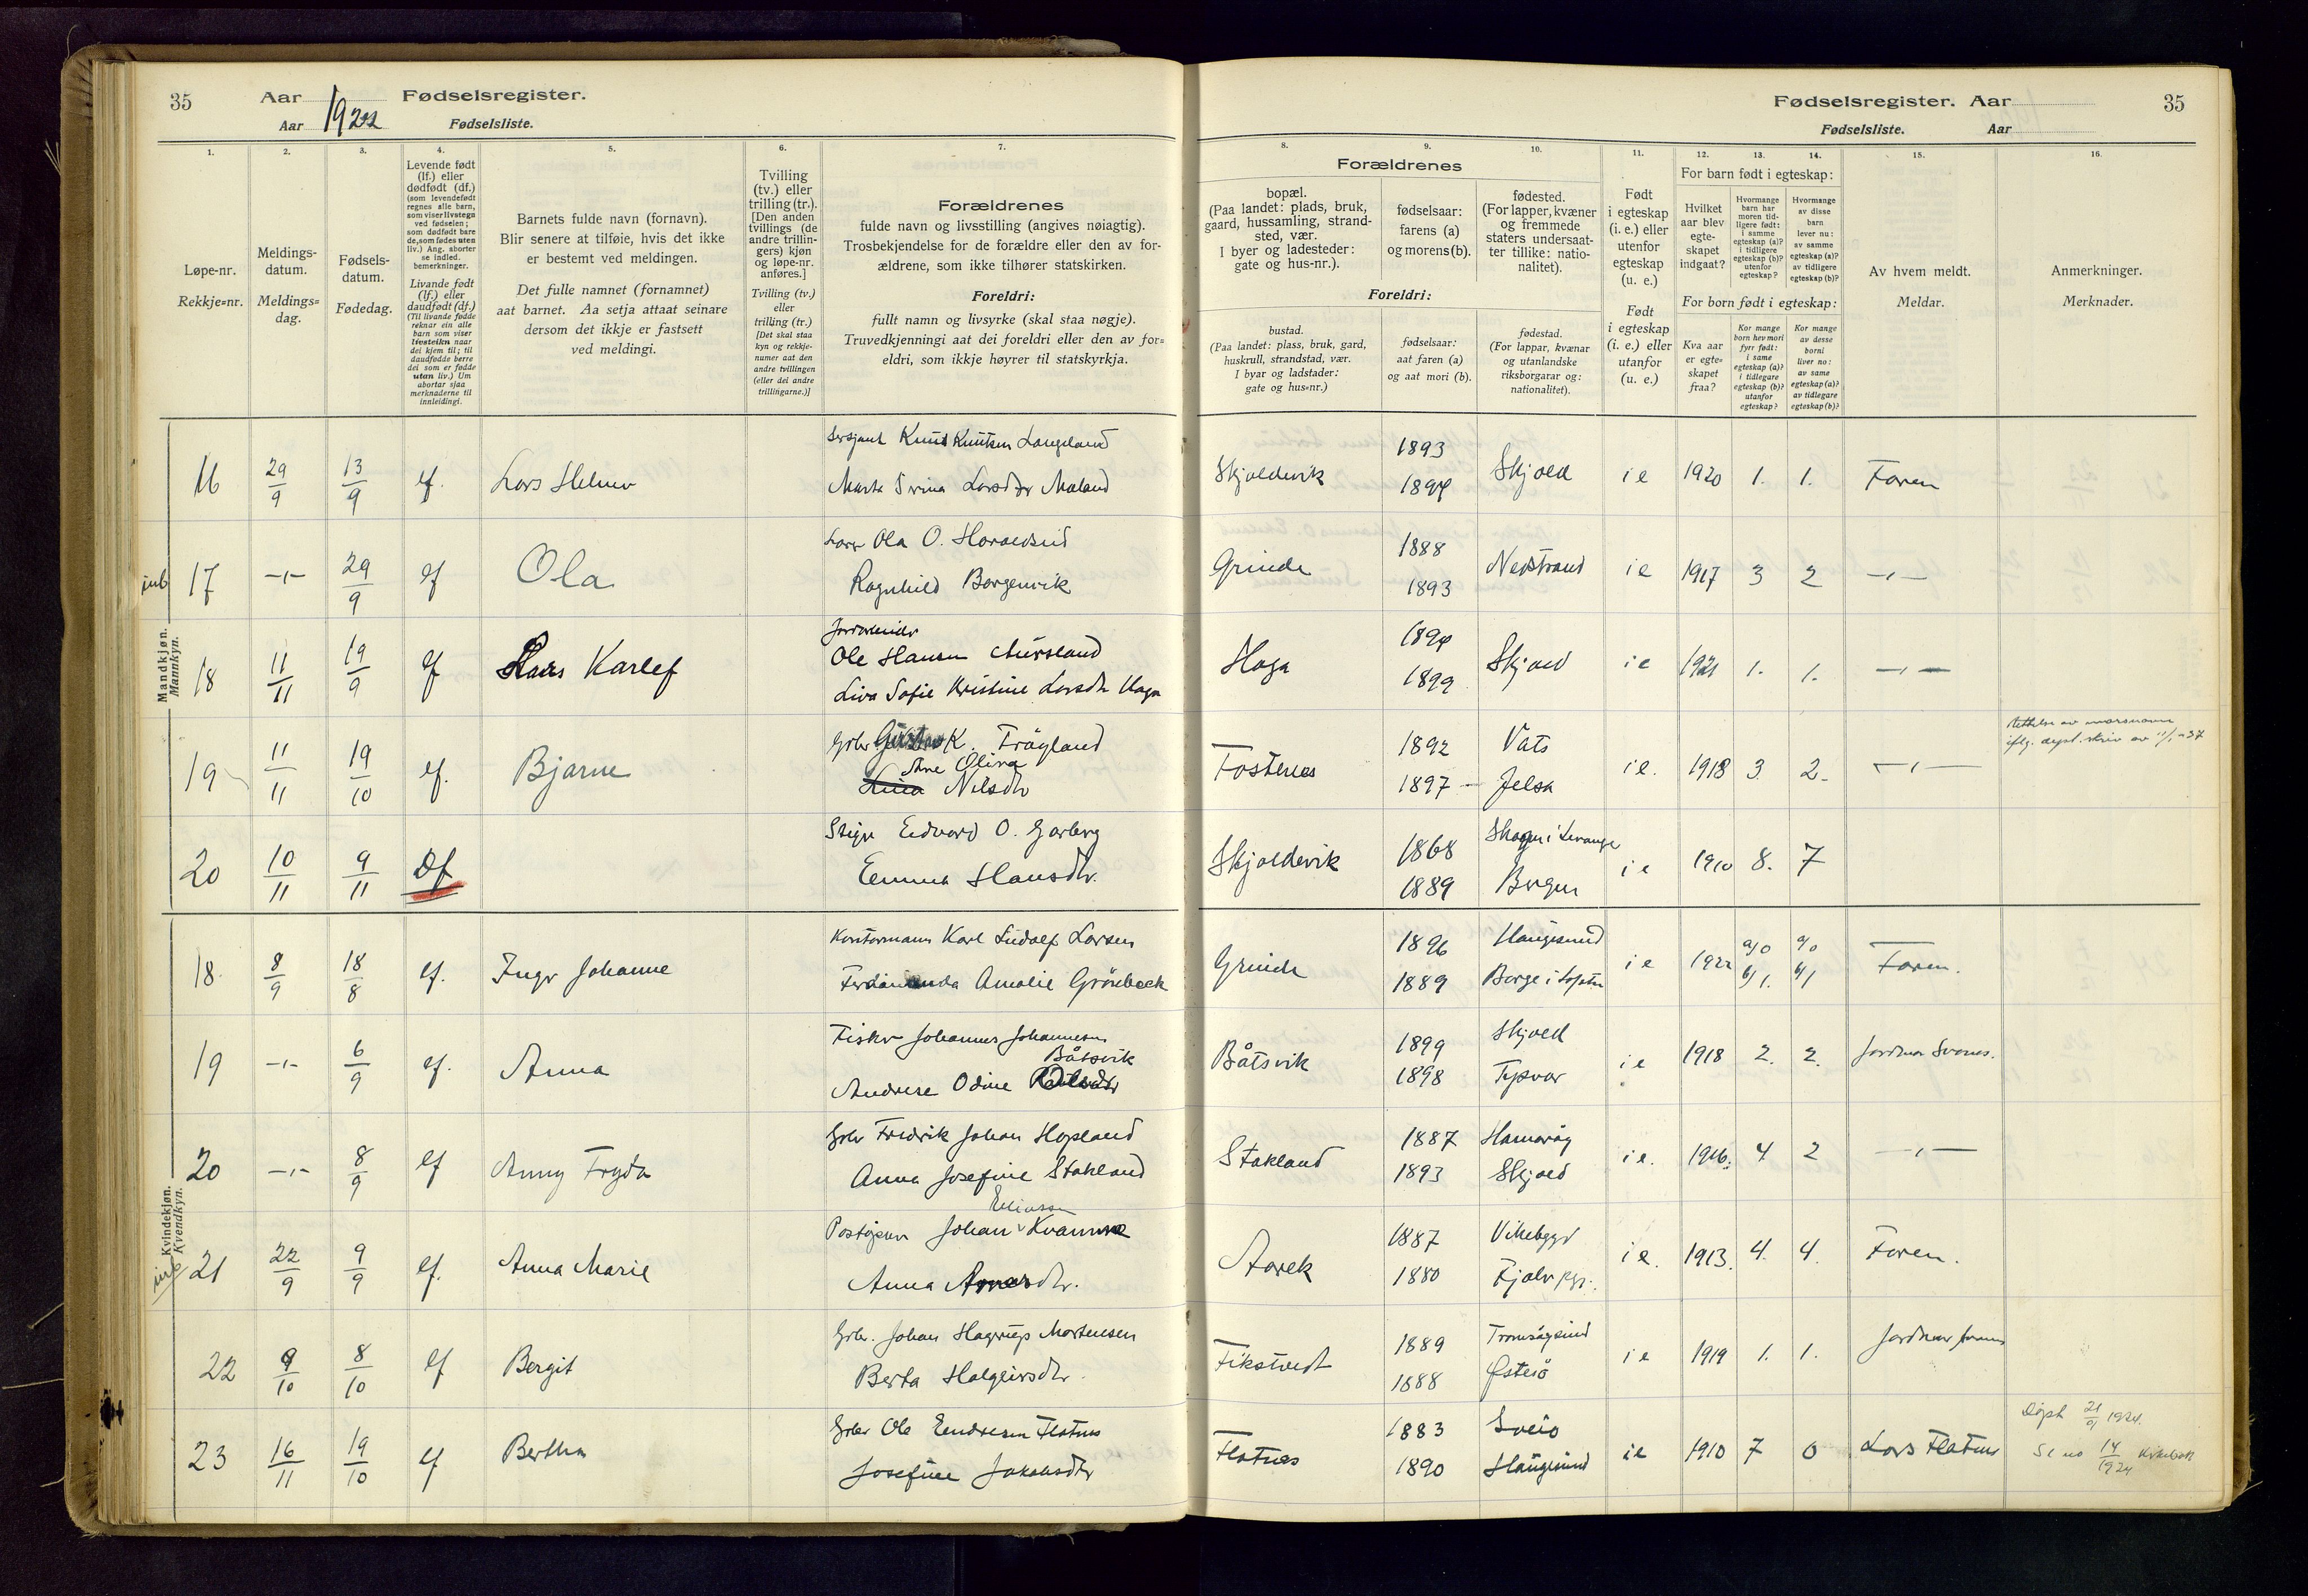 35 Aar 1922 Fødselsregister.
Aar Fødselsliste.
Fødselsregister. Aar 35
Fødselsliste. Aar
1. 2. 3. 4. 5. 6. 7. 8. 9. 10. 11. 12. 13. 14. 15. 16.
Løpe-nr.
Rekkje=nr.
Meldings-
datum.
Meldings=
dag.
Fødsels-
datum.
Fødedag.
Levende født
(lf.) eller
dødfødt (df.)
(som levendefødt
regnes alle barn,
som viser livstegn
ved fødselen;
som dødfødt bare
de, som fødes uten
liv.) Ang. aborter
se indled.
bemerkninger.
Livande født
(lf.) eller
daudfødt (df.)
(Til livande fødde
reknar ein alle
barn som viser
livsteikn naar
dei kjem til; til
daudfødde berre
dei som er fødde
utan liv.) Um
abortar sjaa
merknaderne til
innleidingi.
Barnets fulde navn (fornavn).
Blir senere at tilføie, hvis det ikke
er bestemt ved meldingen.
Det fulle namnet (fornamnet)
aat barnet. Aa setja attaat seinare
dersom det ikkje er fastsett
ved meldingi.
Tvilling
(tv.) eller
trilling (tr.).
[Den anden
tvillings (de
andre trillin-
gers) kjøn
og løpe-nr.
anføres.]
Tvilling (tv.)
eller
trilling (tr.)
[Det skal staa
kyn og rekkje-
numer aat den
andre tvillingen
(eller dei andre
trillingarne.)]
Forældrenes
fulde navn og livsstilling (angives nøiagtig).
Trosbekjendelse for de forældre eller den av for-
ældrene, som ikke tilhører statskirken.
Foreldri:
fullt namn og livsyrke (skal staa nøgje).
Truvedkjenningi aat dei foreldri eller den av for=
eldri, som ikkje høyrer til statskyrkja.
Forældrenes
bopæl.
(Paa landet: plads, bruk,
gaard, hussamling, strand-
sted, vær.
I byer og ladesteder:
gate og hus-nr.).
fødselsaar:
farens (a)
og morens (b).
fødested.
(For lapper, kvæner
og fremmede
staters undersaat-
ter tillike: natio-
nalitet).
Foreldri:
bustad.
(Paa landet: plass, bruk, gard,
huskrull, strandstad, vær.
I byar og ladstader:
gate og hus=nr.)
fødselsaar:
aat faren (a)
og aat mori (b).
fødestad.
(For lappar, kvænar
og utanlandske
riksborgarar og:
nationalitet).
Født
i egteskap
(i. e.) eller
utenfor
egteskap
(u. e.)
Født
i egteskap
(i. e.) eller
utanfor
(u. e.)
For barn født i egteskap:
Hvilket
aar blev
egte-
skapet
indgaat?
Hvormange
barn har
moren tid-
ligere født:
i samme
egteskap (a)?
i tidligere
egteskap (b)?
utenfor
egteskap?
Hvormange
av disse
barn
lever nu:
av samme
egteskap (a)?
av tidligere
egteskap (b)?
For born født i egteskap:
Kva aar
er egte=
skapet
fraa?
Kor mange
born hev mori
fyrr født:
i same
egteskap (a)?
i tidlegare
egteskap (b)?
utanfor
egteskap?
Kor mange
av desse
borni
liver no:
av same
egteskap (a)?
av tidlegare
egteskap (b)?
Av hvem meldt.
Meldar.
Anmerkninger.
Merknader.
Mandkjøn.
Mannkyn.
16 29/9 13/9 lf. Lars Helmer Sersjant Knut Knutsen Langeland
Marta Larsdtr Maland
Skjoldevik 1893 1894 Skjold i e 1920 1. 1. Faren
17 -"- 29/9 lf Ola Ola O. Haraldseid
Ragnhild Borgenvik
Grinde 1888 1893 Nedstrand i e 1917 3 2 -"-
18 11/11 19/9 lf Hans Karlef
Ole Hansen
Liva Sofie Kristine Larsdtr Haga
Haga 1894 1899 Skjold i e 1921 1. 1. -"-
19 11/11 19/10 lf. Bjarne Grbr Gustav K. Frøyland
Ane Olina
Lina Nilsdtr
Fostenes 1892 1897 Vats Jelsa i e. 1918 3 2 -"-
Rettelse av morsnavn
iflg. dept. skriv av 11/1-37
20 10/11 9/11 Df Edvard O. Garberg
Emma Hansdtr.
Skjoldevik 1868 1889 Skogn i Levanger Bergen i e 1910 8. 7
Kvindekjøn.
Kvendkyn.
18 8/9 18/8 lf. Inger Johanne Kontormann Karl Ludolf Larsen
Ferdinanda Amalie Grönbeck
Grinde 1896 1889 Haugesund Borge i Lofoten i e 1922 a/0 b/1. a/0 b/1 Faren.
19 -"- 6/9 lf. Anna Fisker Johannes Johannesen
Båtsvik
Andrea Odine
Båtsvik 1899 1898 Skjold Tysvær i e 1918 2. 2. Jordmor Svanes.
20 -"- 8/9 lf Anny Fryda Grbr Fredrik Johan Hopland
Anna Josefine Stakland
Stakland 1887 1893 Skjold i e. 1916. 4 2 -"-
21 22/9 9/9 lf. Anna Marie
Eliassen
Johan Kvamme
Anna
Aarek 1887 1880 Vikebygd i e. 1913. 4. 4. Faren.
22 9/10 8/10 lf Bergit Grbr. Johan Hagerup Mortensen
Berta Holgeirsdtr.
Fikstvedt 1889 1888 Tromsøysund Østesö i e 1919 1. 1. Jordmor
23 16/11 19/10 lf Bertha Grbr Ole Endresen Flatnes
Josefine Jakobsdtr
Flatnes 1883 1890 Sveio Haugesund i e 1910 7 0 Lars Flatnes
Døpt 21/9 1924.
Se no 14/1924 Kirkebok